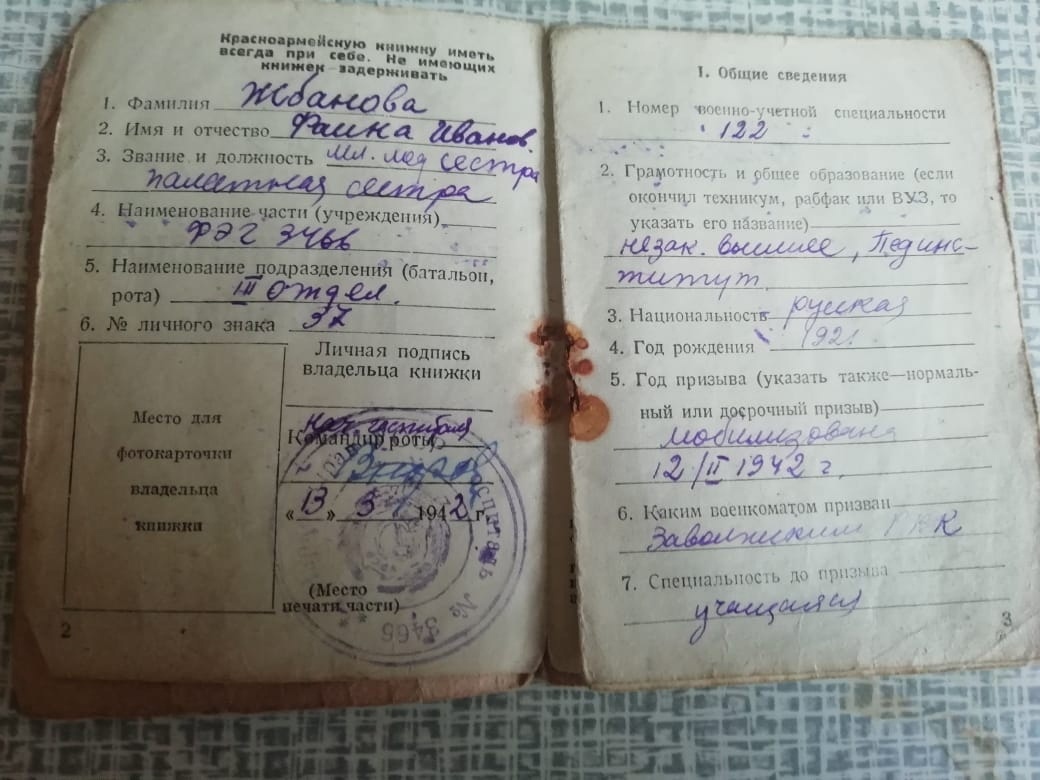 Красноармейскую книжку иметь
всегда при себе. Не имеющих
книжек задерживать
1. Фамилия Жбанова
2. Имя и отчество Фаина Иванов.
3. Звание и должность Мл. мед сестра
палатная сестра
4. Наименование части (учреждения)
ФЭГ 3466
5. Наименование подразделения (батальон,
рота) III отдел.
6. № личного знака 37
Место для
фотокарточки
владельца
книжки
Личная подпись
владельца книжки
Нач. госпиталя
Командир роты
«13» 5 1942 г.
(Место
печати части)
госпиталь № 3466
2
I. Общие сведения
1. Номер военно-учетной специальности
122
2. Грамотность и общее образование (если
окончил техникум, рабфак или ВУЗ, то
указать его название)
незак. высшее, Пединс-
титут.
3. Национальность русская
4. Год рождения 1921
5. Год призыва (указать также—нормаль-
ный или досрочный призыв)
мобилизована
12/II 1942 г.
6. Каким военкоматом призван
Заволжским РВК
7. Специальность до призыва
учащаяся
3